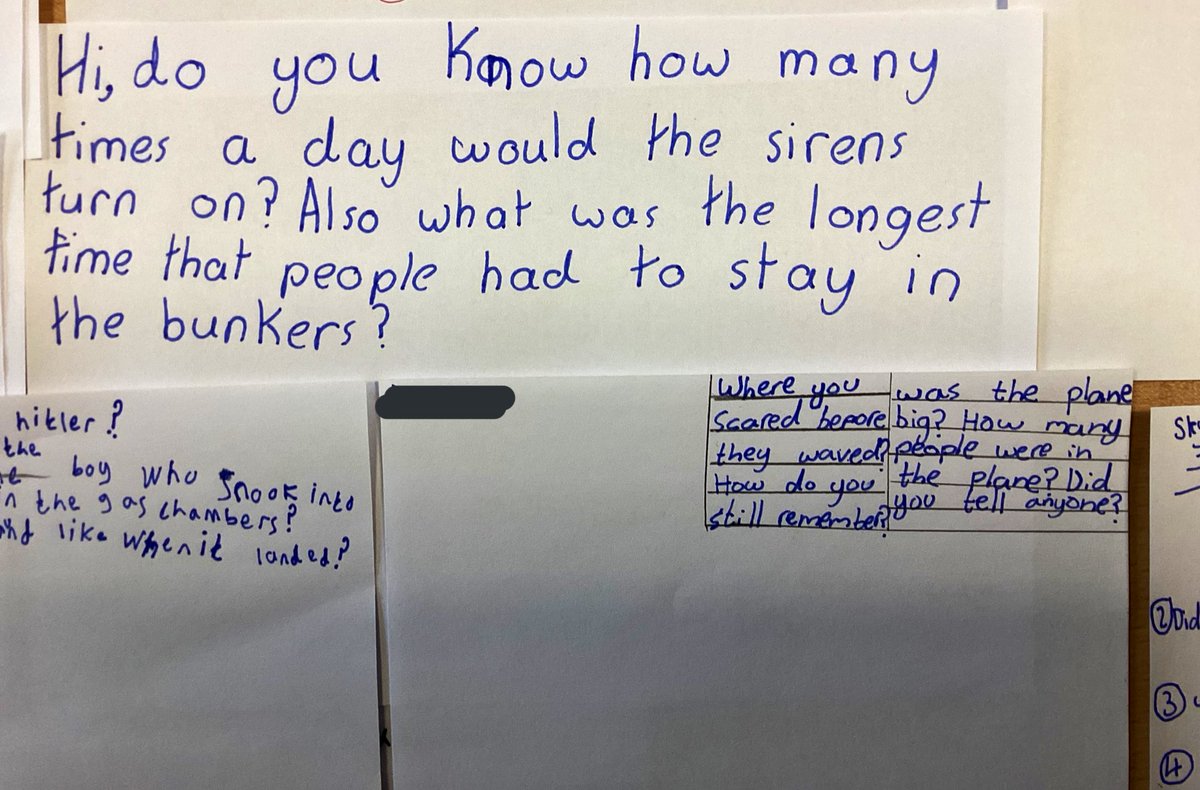 Hi, do you Know how many
times a day would the sirens
turn on? Also what was the longest
time that people had to stay in
the bunkers?
hitler?
the
boy who snook into
the gas chambers?
like when it landed?
Where you
scared before
they waved?
How do you
still remember?
was the plane
big? How many
people were in
the plane? Did
you tell anyone?
② Did
③
④